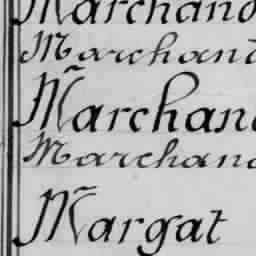 Marchand
Marchant
Marchand
Marchand
Margat